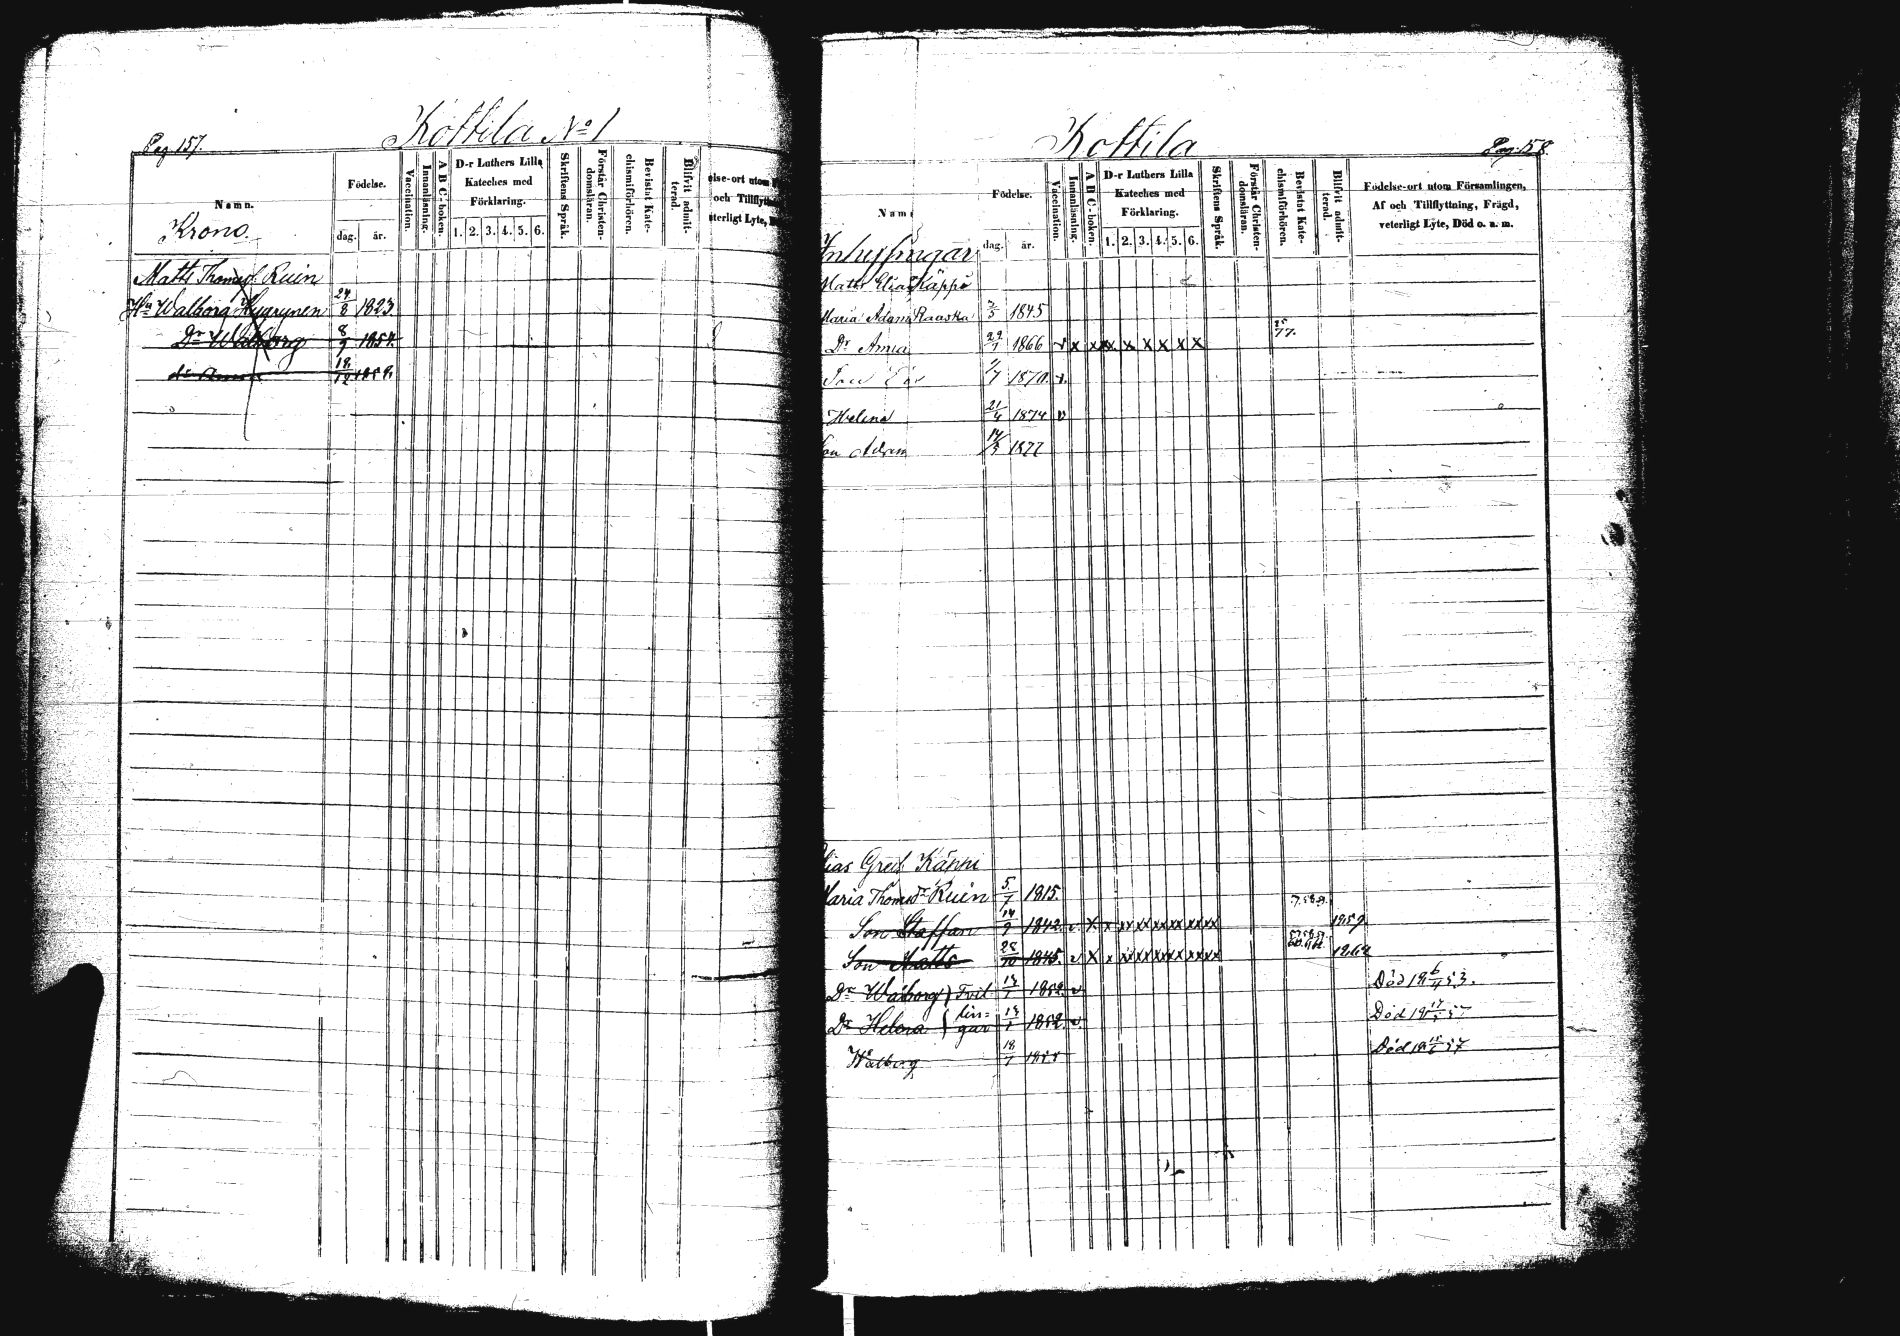 Pag. 157.
Kottila No 1
Namn.
Födelse.
dag.
år.
Vaccination.
Innanläsning.
A B C-boken.
D-r Luthers Lilla
Kateches med
Förklaring.
1. 2. 3. 4. 5. 6.
Skriftens Språk.
Förstår Christen-
domsläran.
Bevistat Kate-
chismiförhören.
Blifvit admit-
terad.
else-ort utom
och Tillflyttn
eterligt Lyte,
Krono
Matts Thomasf. Ruin
Hu Walborg Hyyrynen 24/8 1823
Dr Walborg 8/9 1854
dr Anna 18/12
Kottila
Pag. 158
Namn
Födelse.
dag.
år.
Vaccination.
Innanläsning.
A B C-boken.
D-r Luthers Lilla
Kateches med
Förklaring.
1. 2. 3. 4. 5. 6.
Skriftens Språk.
Förstår Christen-
domsläran.
Bevistat Kate-
chismiförhören.
Blifvit admit-
terad.
Födelse-ort utom Församlingen,
Af och Tillflyttning, Frägd,
veterligt Lyte, Död o. s. m.
Inhysingar
Matts Elias Käppi
Maria Adams Raaska 1845
Dr Anna 29/7 1866 v x xx xx x x x x x 77.
1870. v.
Helena 21/4 1874 v
Adam 14/3 1877
lias Gref. Käppi
aria Thomsdr Ruin 5/7 1815.
Son Staffan 14/9 1842. v. x x xx xx xx xx xx xx 1859
Son Matts 28/10 1845. v x x xx xx xx xx xx xx 1862
Dr Walborg } Tvil- 13/1 1852. v Död 18 6/4 53.
Dr Helena } lin=
gar 13/1 1852. v. Död
Walborg 18/7 Död